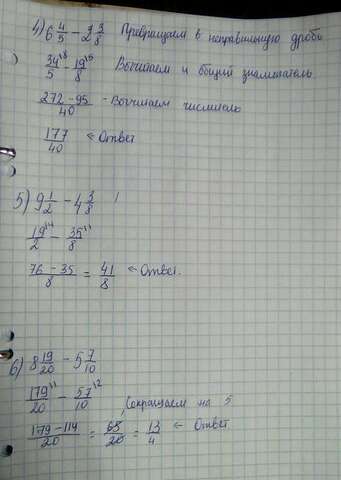 4) 6 4/5 − 2 3/8 Превращаем в неправильную дробь
34/5 − 19/8 Вычитаем и общий знаменатель
272 − 95/40 - Вычитаем числитель
177/40 ← Ответ
5) 9 1/2 − 4 3/8
19/2 − 35/8
76 − 35/8 = 41/8 ← Ответ.
6) 8 19/20 − 5 7/10
179/20 − 57/10 Сокращаем на 5
179 − 114/20 = 65/20 = 13/4 ← Ответ